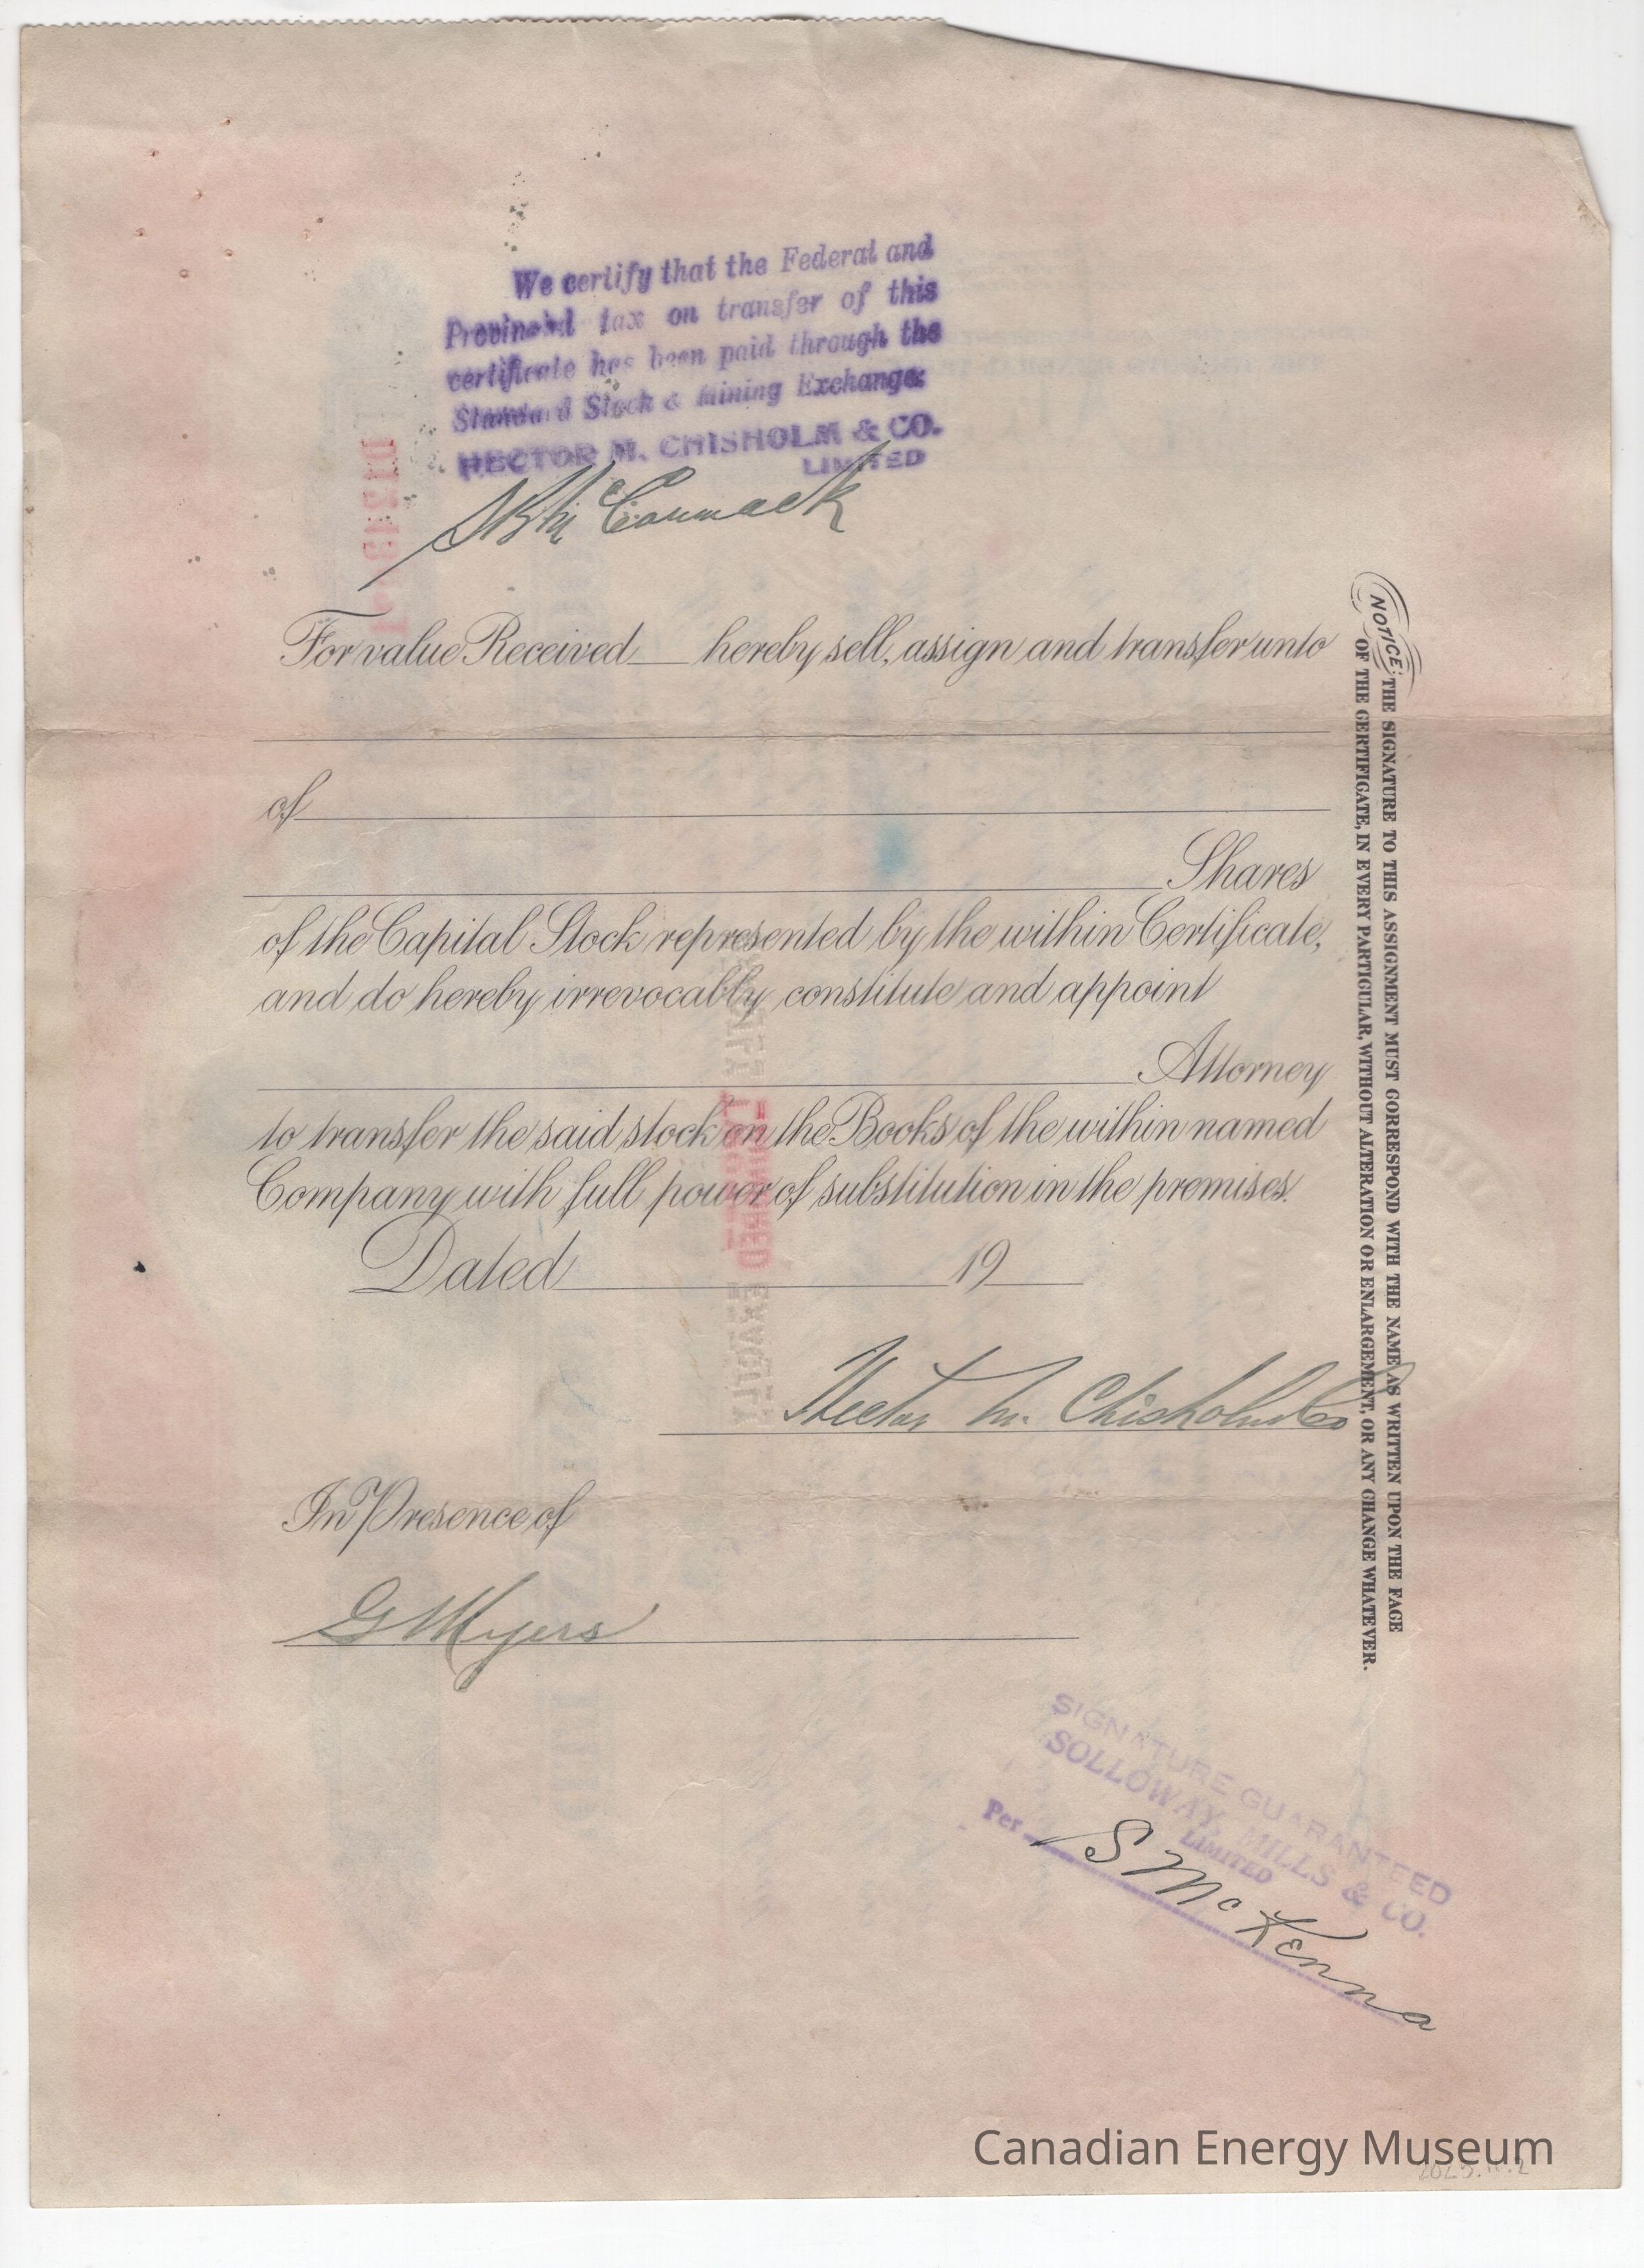 We certify that the Federal and
Provincial tax on transfer of this
certificate has been paid through the
Standard Stock & Mining Exchange
HECTOR M. CHISHOLM & CO.
LIMITED
McCormack
For value Received ___ hereby sell, assign and transfer unto
of
Shares
of the Capital Stock represented by the within Certificate,
and do hereby irrevocably constitute and appoint
Attorney
to transfer the said stock on the Books of the within named
Company with full power of substitution in the premises.
Dated 19
Hector M. Chisholm & Co
In Presence of
G Myers
NOTICE: THE SIGNATURE TO THIS ASSIGNMENT MUST CORRESPOND WITH THE NAME AS WRITTEN UPON THE FACE
OF THE CERTIFICATE, IN EVERY PARTICULAR, WITHOUT ALTERATION OR ENLARGEMENT, OR ANY CHANGE WHATEVER.
SIGNATURE GUARANTEED
SOLLOWAY, MILLS & CO.
LIMITED
Per S McKenna
Canadian Energy Museum